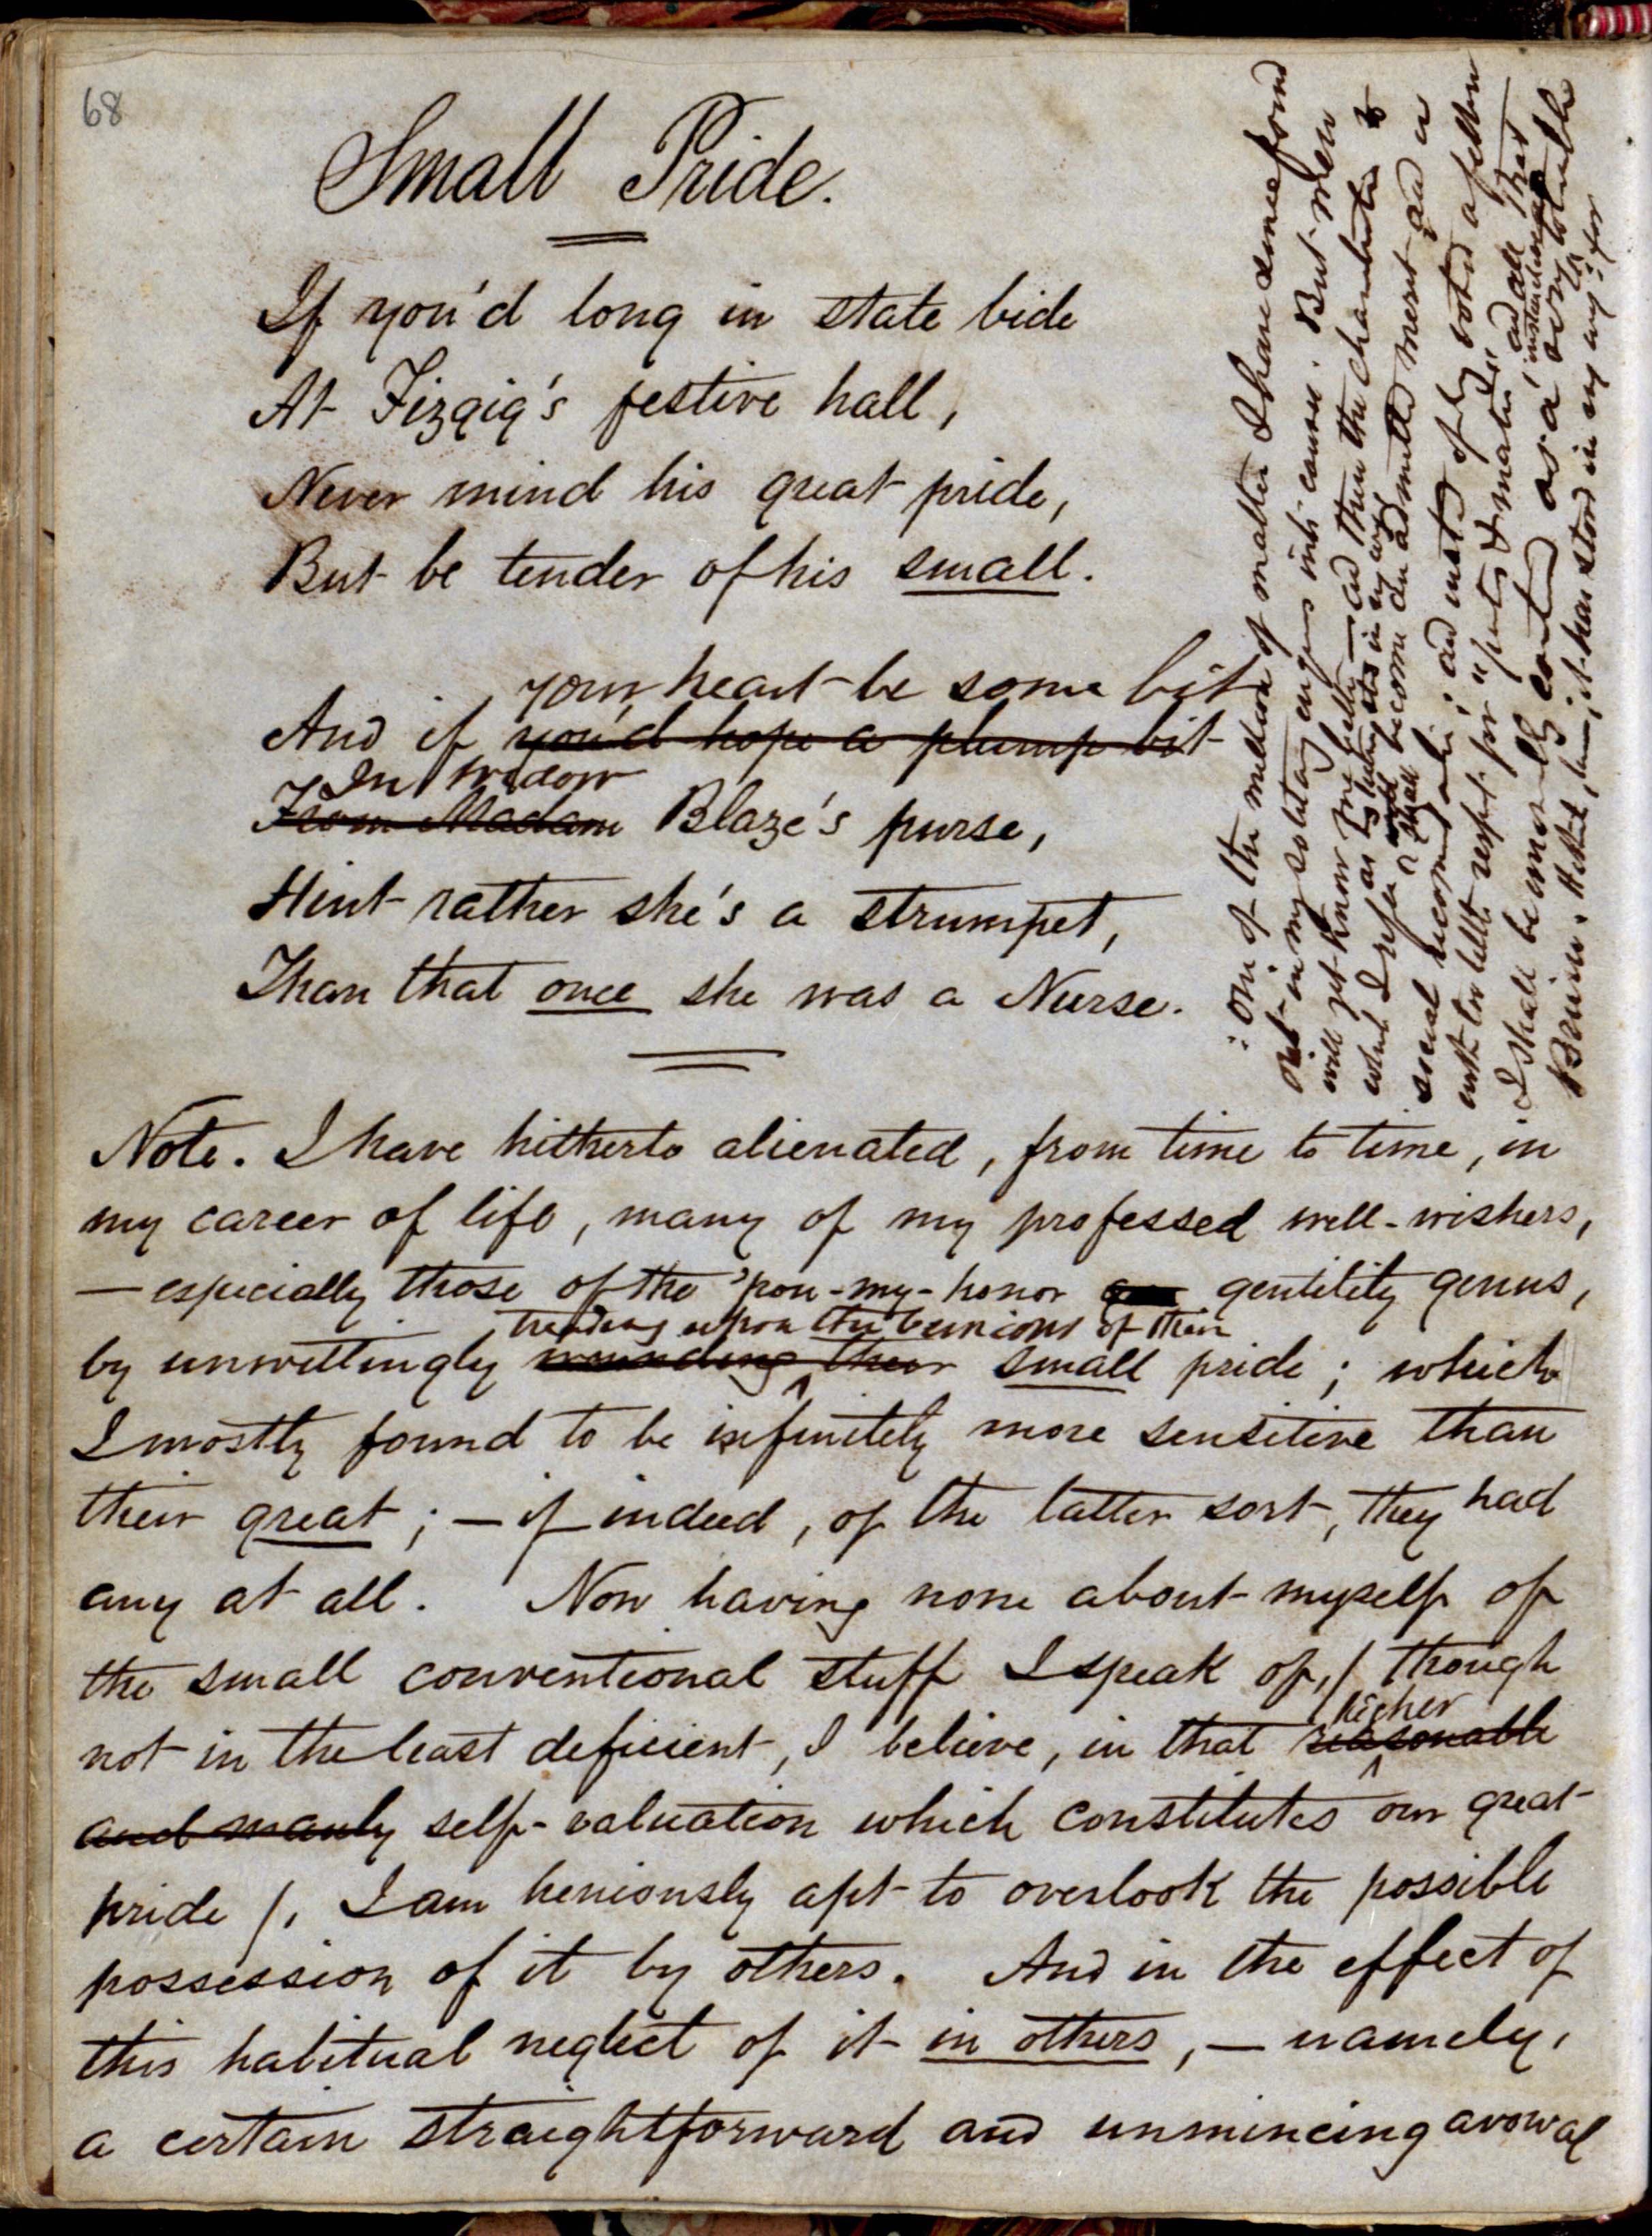 68
Small Pride.
If you'd long in state bide
At Fizgig's festive hall,
Never mind his great pride,
But be tender of his small.
your heart be some bit
And if you'd hope a plump bit
In Widow
From Madam Blaze's purse,
Hint rather she's a strumpet,
Than that once she was a Nurse.
Note. I have hitherto alienated, from time to time, in
my career of life, many of my professed well-wishers,
— especially those of the 'pon-my-honor gentility genus,
treading upon the bunions of their
by unwittingly wounding their small pride; which
I mostly found to be infinitely more sensitive than
their great; — if indeed, of the latter sort, they had
any at all. Now having none about myself of
the small conventional stuff I speak of, / though
higher
not in the least deficient, I believe, in that reasonable
and manly self-valuation which constitutes our great
pride /, I am heniously apt to overlook the possible
possession of it by others. And in the effect of
this habitual neglect of it in others, — namely,
a certain straightforward and unmincing avowal
: one of the medium of matter I have since found
out in my solitary into course. But men
will yet know me fully — and then the
which I as in my way
social and instead of being voted a fellow
with too little respect for and all that
I shall be counted as a very
it has stood in my way: for